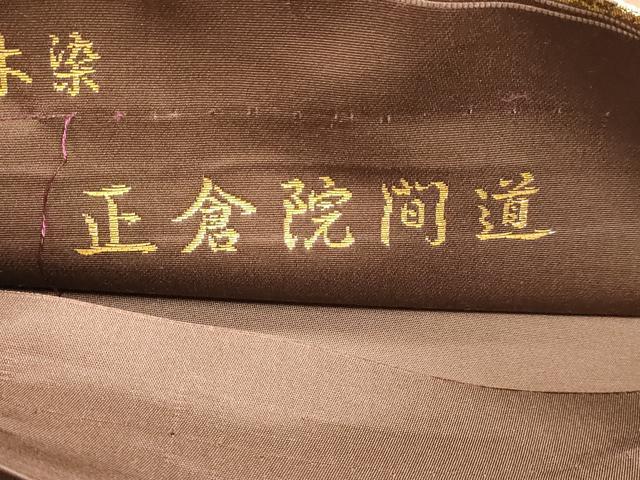 木染
正倉院間道